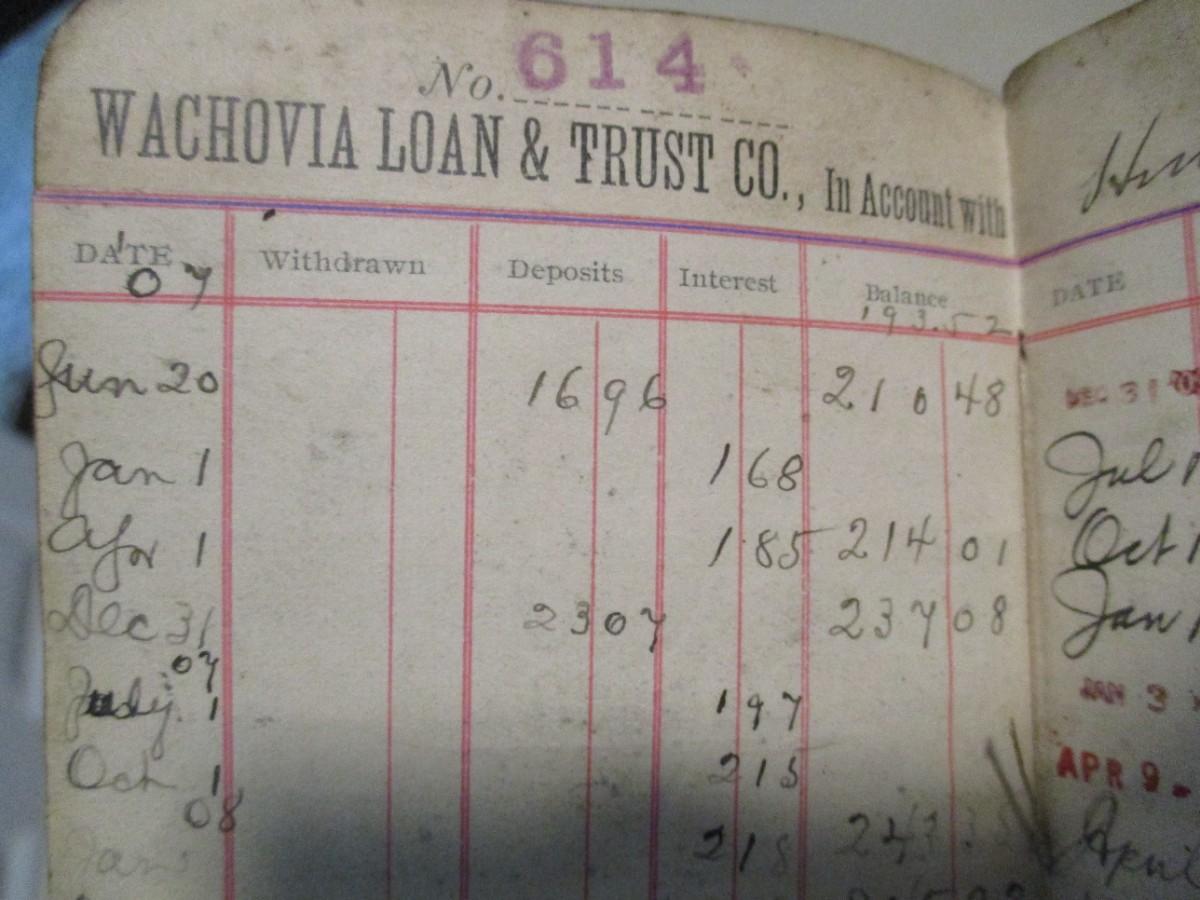 No. 614
WACHOVIA LOAN & TRUST CO., In Account with
DATE Withdrawn Deposits Interest Balance
07 193.52
Jun 20 16 96 210 48
Jan 1 1 68
Apr 1 1 85 214 01
Dec 31 23 07 237 08
07
July 1 1 97
Oct 1 2 15
08
Jan 2 18
DATE
DEC 31
Jul 1
Oct 1
Jan 1
JAN 3
APR 9
April